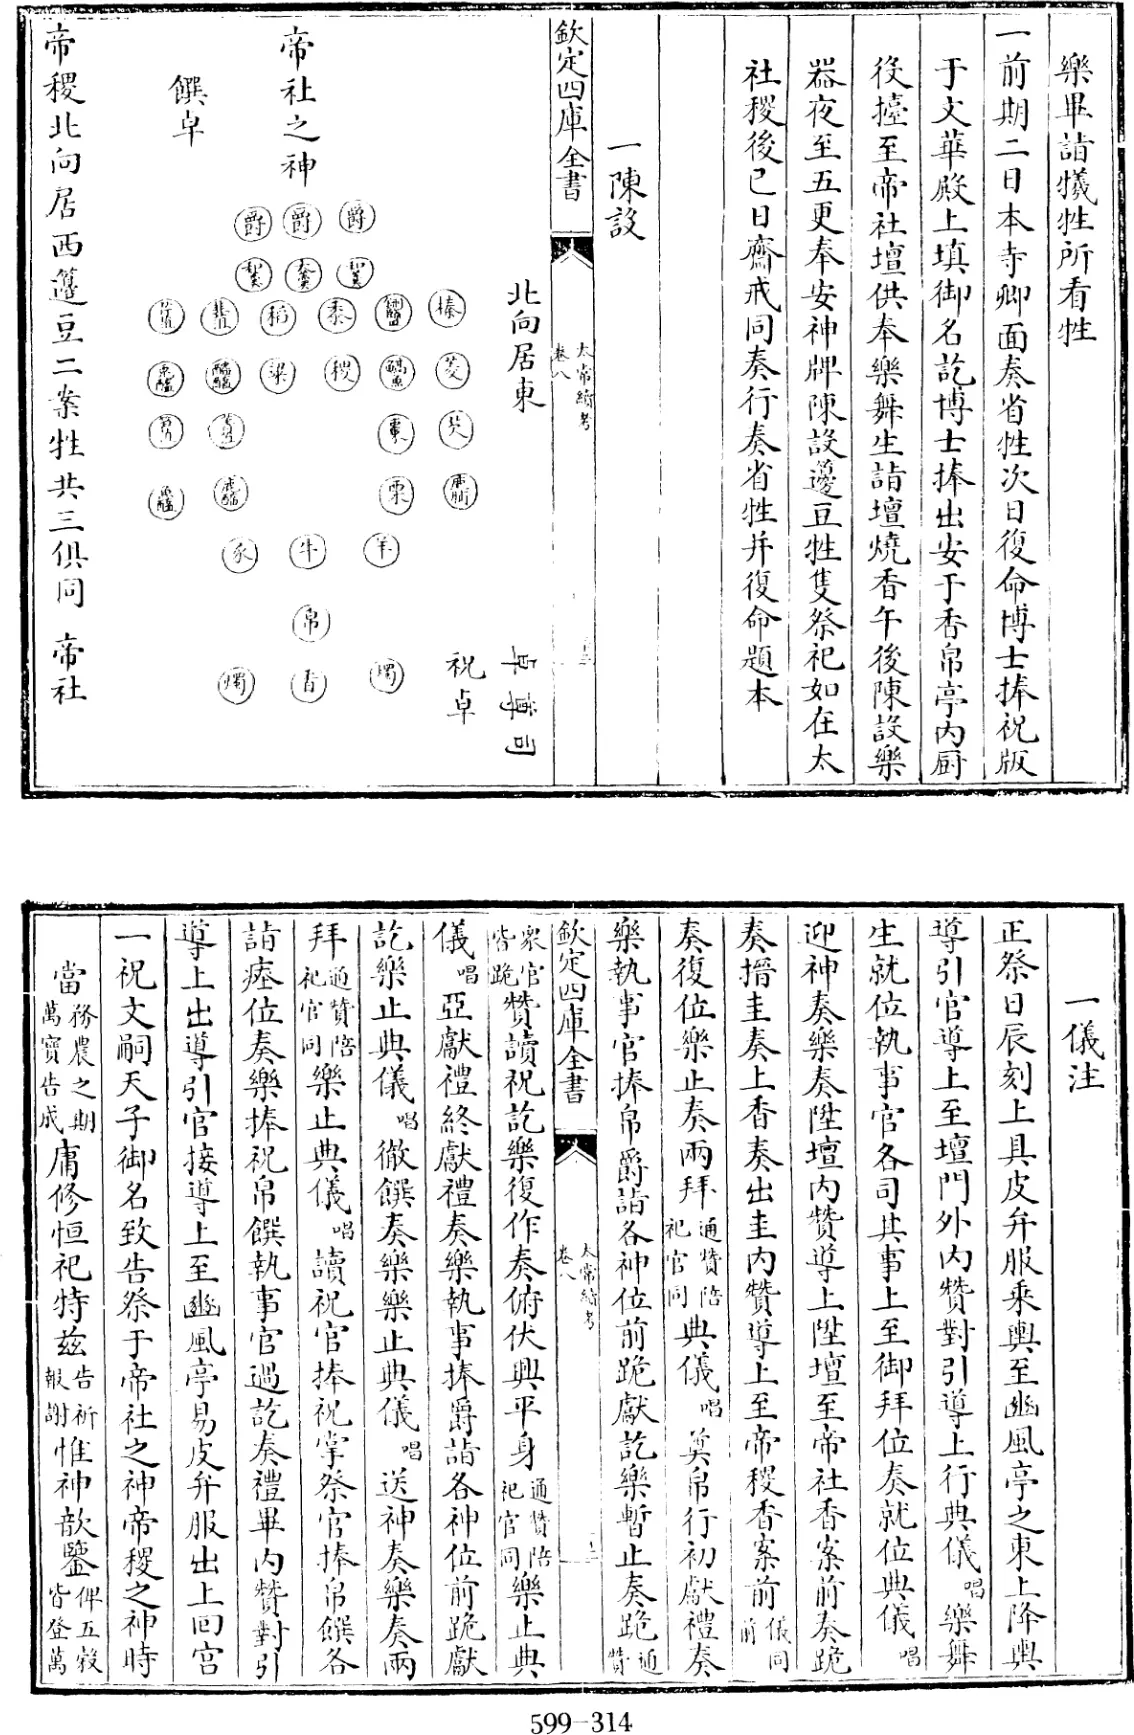 樂畢詣犧牲所看牲
一前期二日本寺卿面奏省牲次日復命博士捧祝版
于文華殿上填御名訖博士捧出安于香帛亭内厨
役擡至帝社壇供奉樂舞生詣壇燒香午後陳設樂
器夜至五更奉安神牌陳設籩豆牲隻祭祀如在太
社稷後已日齋戒同奏行奏省牲并復命題本
一陳設
欽定四庫全書
太常續考
卷八
北向居東
帝社之神
饌卓
爵 爵 爵
和羮 太羮 和羮
榛 形鹽 黍 稻 韭菹
菱 鱐魚 稷 粱 醓醢
芡 棗
鹿脯 栗
羊 牛 豕
帛
燭 香 燭
祝卓
司尊卓
帝稷北向居西籩豆二案牲共三俱同 帝社
一儀注
正祭日辰刻上具皮弁服乘輿至豳風亭之東上降輿
導引官導上至壇門外内贊對引導上行典儀唱樂舞
生就位執事官各司其事上至御拜位奏就位典儀唱
迎神奏樂奏陞壇内贊導上陞壇至帝社香案前奏跪
奏搢圭奏上香奏出圭内贊導上至帝稷香案前儀同前
奏復位樂止奏兩拜通贊陪祀官同典儀唱奠帛行初獻禮奏
樂執事官捧帛爵詣各神位前跪獻訖樂暫止奏跪通贊
欽定四庫全書
太常續考
卷八
衆官皆跪贊讀祝訖樂復作奏俯伏興平身通贊陪祀官同樂止典
儀唱亞獻禮終獻禮奏樂執事捧爵詣各神位前跪獻
訖樂止典儀唱徹饌奏樂樂止典儀唱送神奏樂奏兩
拜通贊陪祀官同樂止典儀唱讀祝官捧祝掌祭官捧帛饌各
詣瘞位奏樂捧祝帛饌執事官過訖奏禮畢内贊對引
導上出導引官接導上至豳風亭易皮弁服出上回宫
一祝文嗣天子御名致告祭于帝社之神帝稷之神時
當務農之期萬寶告成庸修恒祀特茲告祈報謝惟神歆鑒俾五穀皆登萬
599-314